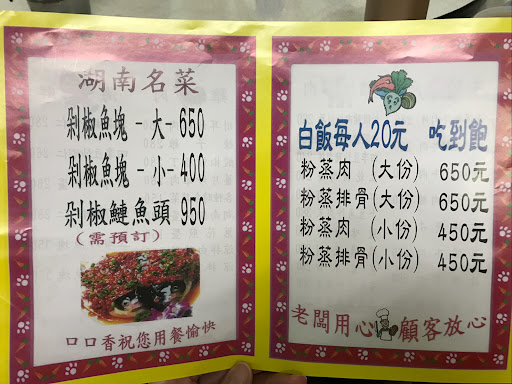 湖南名菜
剁椒魚塊 - 大 - 650
剁椒魚塊 - 小 - 400
剁椒鰱魚頭 950
(需預訂)
口口香祝您用餐愉快
白飯每人20元 吃到飽
粉蒸肉 (大份) 650元
粉蒸排骨(大份) 650元
粉蒸肉 (小份) 450元
粉蒸排骨(小份) 450元
老闆用心 顧客放心